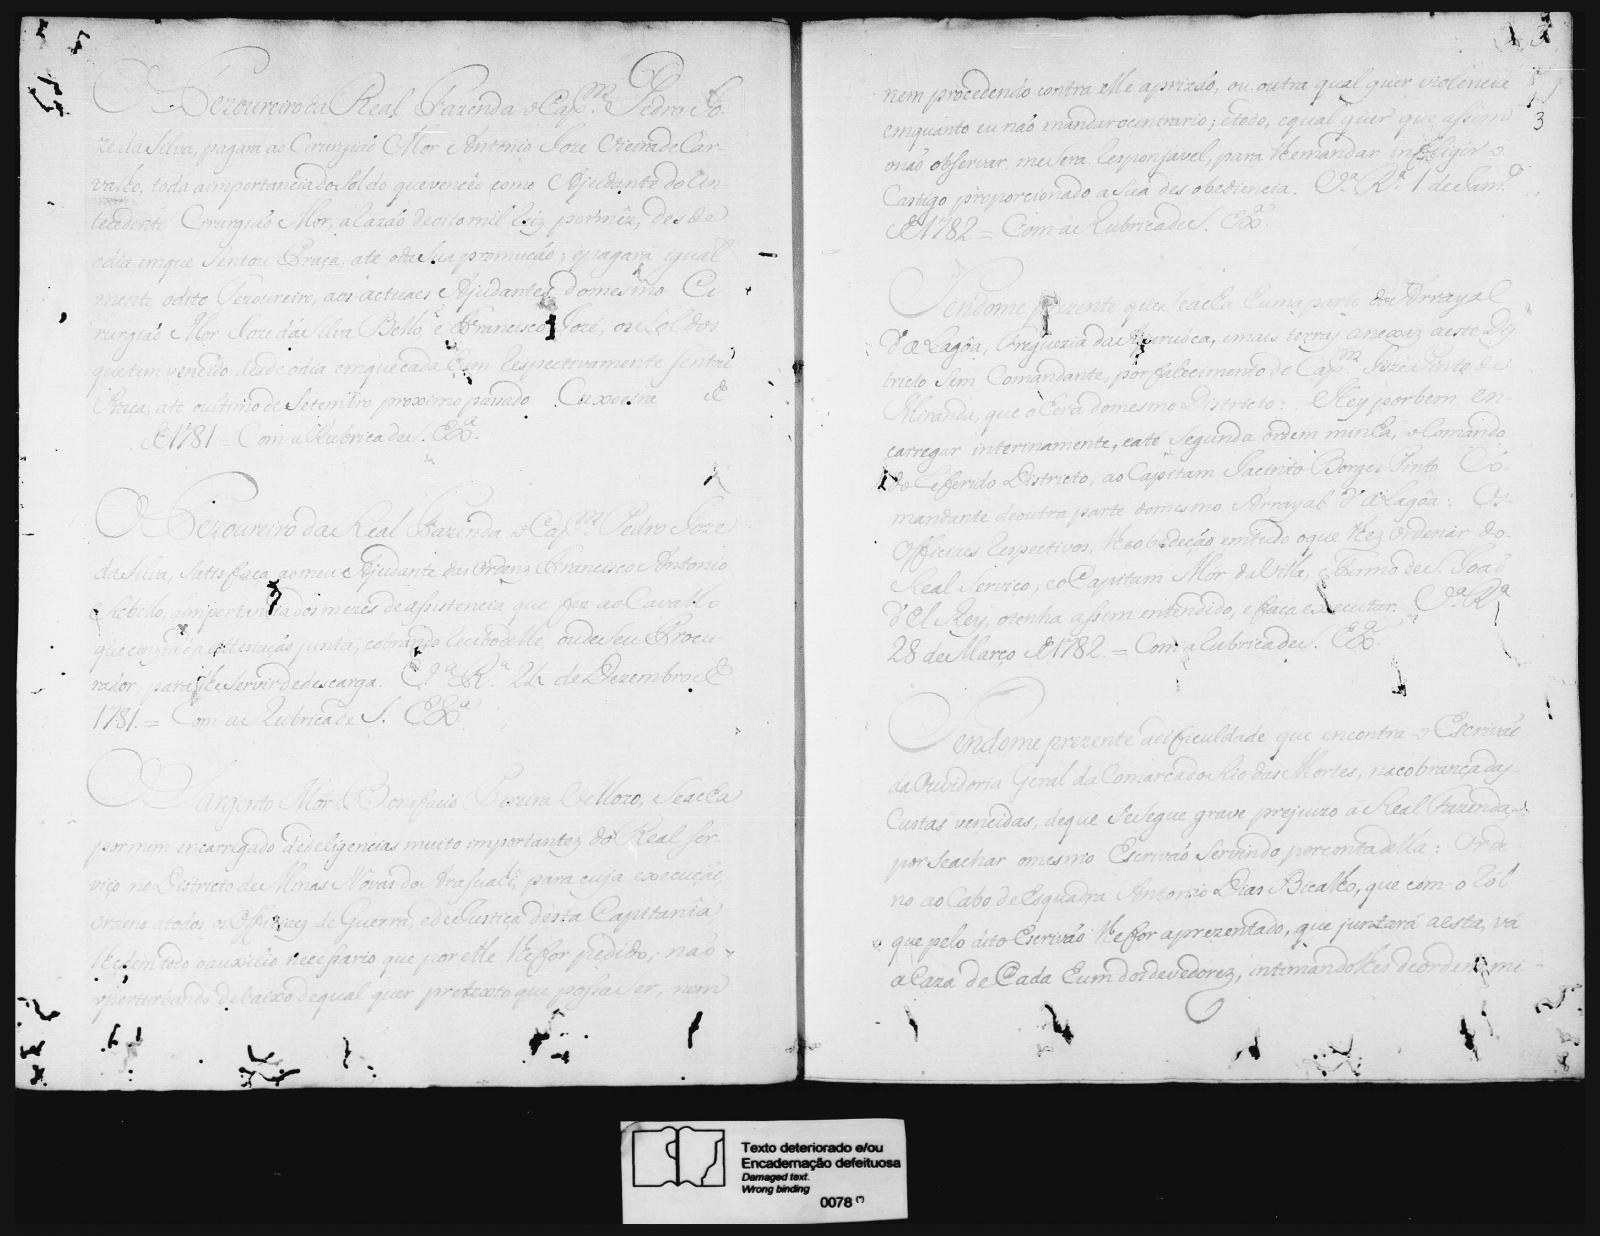 O Tezoureiro da Real Fazenda o Cap.m Pedro Jo-
ze da Silva, pagará ao Cirurgiaõ Mór Antonio Joze Vieira de Car-
valho, toda a importancia do Soldo que venceo como Ajudante do An-
tecedente Cirurgiaõ Mor, a razaõ de oito mil reiz por mêz, desde
o dia em que Sentou Praça, até o da Sua promuçaõ; e pagará igual
mente o dito Tezoureiro, aos actuaes Ajudantes do mesmo Ci-
rurgiaõ Mor Joze da Silva Bello, e Francisco Joze, os Soldos
que tem vencido desde o dia em que cada hum respectivamente sentou
Praça, até o ultimo de Setembro proximo passado. Caxoeira
de 1781 = Com a Rubrica de S. Ex.a
O Tezoureiro da Real Fazenda o Cap.m Pedro Joze
da Silva, Satisfaça ao meu Ajudante das Ordenz Francisco Antonio
Rebello, a importancia dos mezes de assistencia que fez ao Cavallo
que consta da Attestaçaõ junta, cobrando recibo delle, ou de Seu Procu-
rador, para lhe Servir de descarga. V.a R.a 24 de Dezembro de
1781. = Com a Rubrica de S. Ex.a
O Sargento Mór Bonifacio Pereira Vellozo, Se acha
por mim encarregado de deligencias muito importantez do Real Ser-
viço no Districto de Minas Nôvas do Arasuahi, para cuja execuçaõ,
Ordeno a todos os Officiaes de Guerra, e de Justiça desta Capitania
lhe dem todo o auxilio necessario que por elle lhe for pedido; naõ
o perturbando debaixo de qual quer pretexto que possa ser, nem
3
nem procedendo contra elle a prizaõ, ou outra qual quer violencia
emquanto eu naõ mandar o contrario; e todo, e qual quer que assim
o naõ observar, me Será responsavel, para lhe mandar infligir o
Castigo proporcionado a Sua desobediencia. V.a R.a 1 de Jan.ro
de 1782 = Com a Rubrica de S. Ex.a
Sendome prezente que Se acha huma parte do Arrayal
d'a Lagôa, Freguezia da Ayuruóca, e mais terras anexaz a este Dis-
tricto Sem Comandante, por falecimento do Cap.m Joze Pinto de
Miranda, que o hera do mesmo Districto: Hey por bem en-
carregar interinamente, e até Segunda ordem minha, o Comando
do referido Districto, ao Capitam Jacinto Borges Pinto Co-
mandante de outra parte do mesmo Arrayal d'a Lagôa: Os
Officiaes respectivos, lhe obedeçaõ em tudo o que lhez ordenár do
Real Serviço; e o Capitam Mór da Villa, e Termo de S. Joaõ
d'El Rey, o tenha assim entendido, e faça executar. V.a R.a
28 de Março de 1782. = Com a rubrica de S. Ex.a
Sendome prezente a dificuldade que encontra o Escrivaõ
da Ouvidoria Geral da Comarca do Rio das Mortes, na cobrança das
Custas vencidas, de que Se Segue grave prejuizo á Real Fazenda
por Se achar o mesmo Escrivaõ Servindo por conta della: Orde-
no ao Cabo de Esquadra Antonio Dias Bicalho, que com o rol
que pelo dito Escrivaõ lhe for aprezentado, que juntará a esta, vá
a Caza de Cada hum dos devedorez, intimandolhes de ordem mi-
Texto deteriorado e/ou
Encadernação defeituosa
Damaged text.
Wrong binding
0078 (*)